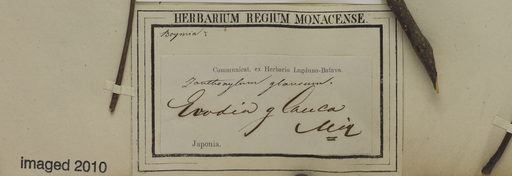 HERBARIUM REGIUM MONACENSE.
Boymia?
Communicat. ex Herbario Lugduno-Batavo
Zanthoxylum glaucum.
Evodia glauca
Miq
Japonia.
imaged 2010